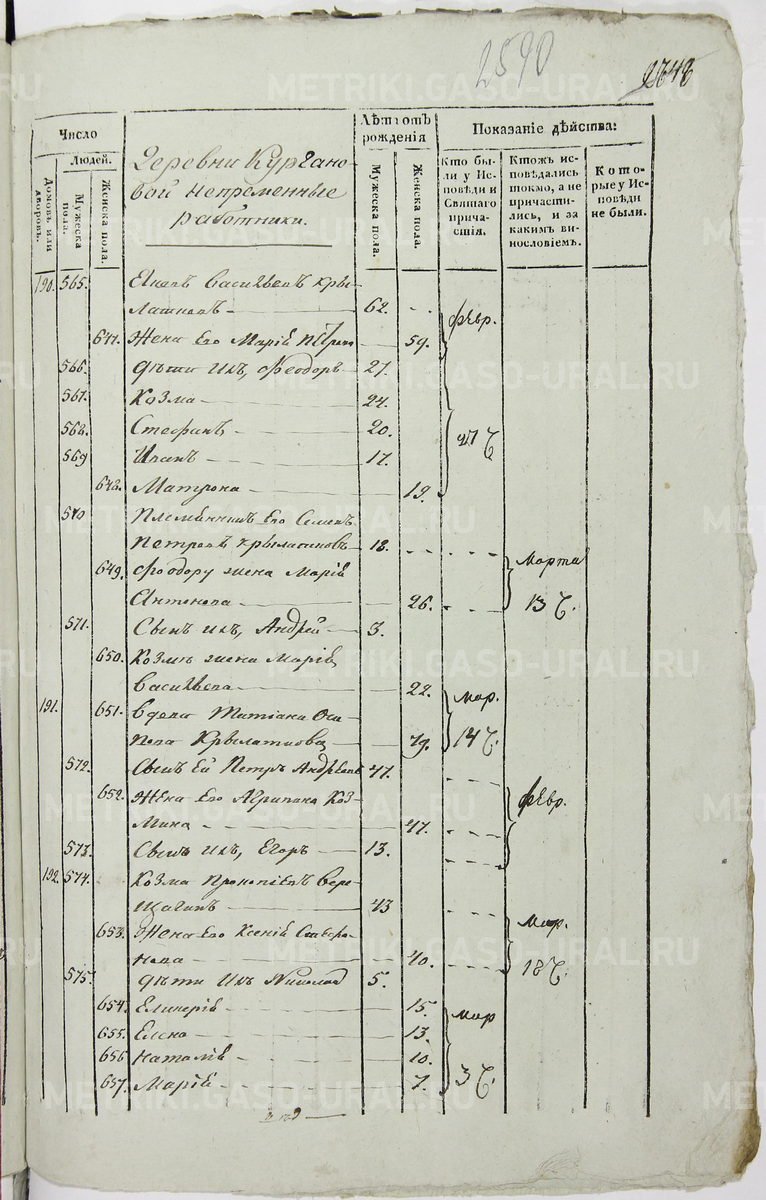 2590
Число
Людей.
Домовъ или дворовъ.
Мужеска пола.
Женска пола.
Деревни Кургано-
вой непременные
работники.
Лѣтъ отъ рожденія
Мужеска пола.
Женска пола.
Показаніе дѣйства:
Кто бы-
ли у Ис-
повѣди и
Святаго
прича-
стія.
Ктожъ ис-
повѣдались
токмо, а не
причасти-
лись, и за
какимъ ви-
нословіемъ.
Кото-
рые у Ис-
повѣди
не были.
190. 565. Васильевъ Кры-
62.
февр.
647. Жена его Марія Петрова 59.
566. дѣти ихъ, Феодоръ 27.
567. Козма 24.
568. Стефанъ 20.
569 Иванъ 17.
648. Матрона 19.
570 Племянникъ его Семенъ
Петровъ Крыласововъ 18.
Марта
649. Феодору жена Марія
Антонова 26.
13
571. Сынъ ихъ, Андрей 3.
650. Козмѣ жена Марія
Васильева 22.
мар.
191. 651. Вдова Татіана Оси-
пова 79.
14
572. Сынъ ей Петръ Андреевъ 47.
652. Жена его Агрипина Коз-
мина 47.
февр.
573. Сынъ ихъ, Егоръ 13.
192. 574. Козма Прокопіевъ Вере-
щагинъ 43
мар.
653. Жена его Ксенія
нова 40.
18
575. дѣти ихъ Николай 5.
654. 15.
мар
655. Елена 13.
656 Наталія 10.
657. Марія 7.
3
METRIKI.GASO-URAL.RU